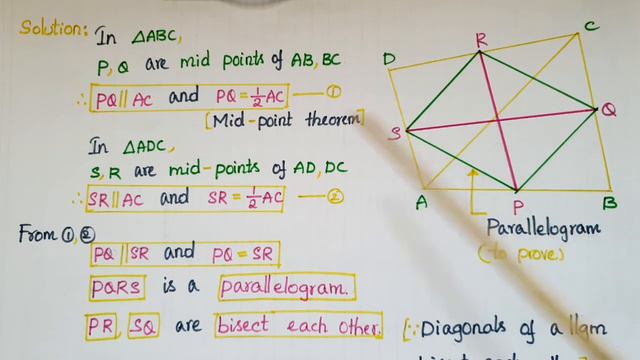 Solution: In △ABC,
P, Q are mid points of AB, BC
∴ PQ || AC and PQ = 1/2 AC —— ①
[Mid-point theorem]
In △ADC,
S, R are mid-points of AD, DC
∴ SR || AC and SR = 1/2 AC —— ②
From ①, ②
PQ || SR and PQ = SR
PQRS is a parallelogram.
PR, SQ are bisect each other. [∵ Diagonals of a llgm
D
R
C
S
Q
A
P
B
Parallelogram
(to prove)